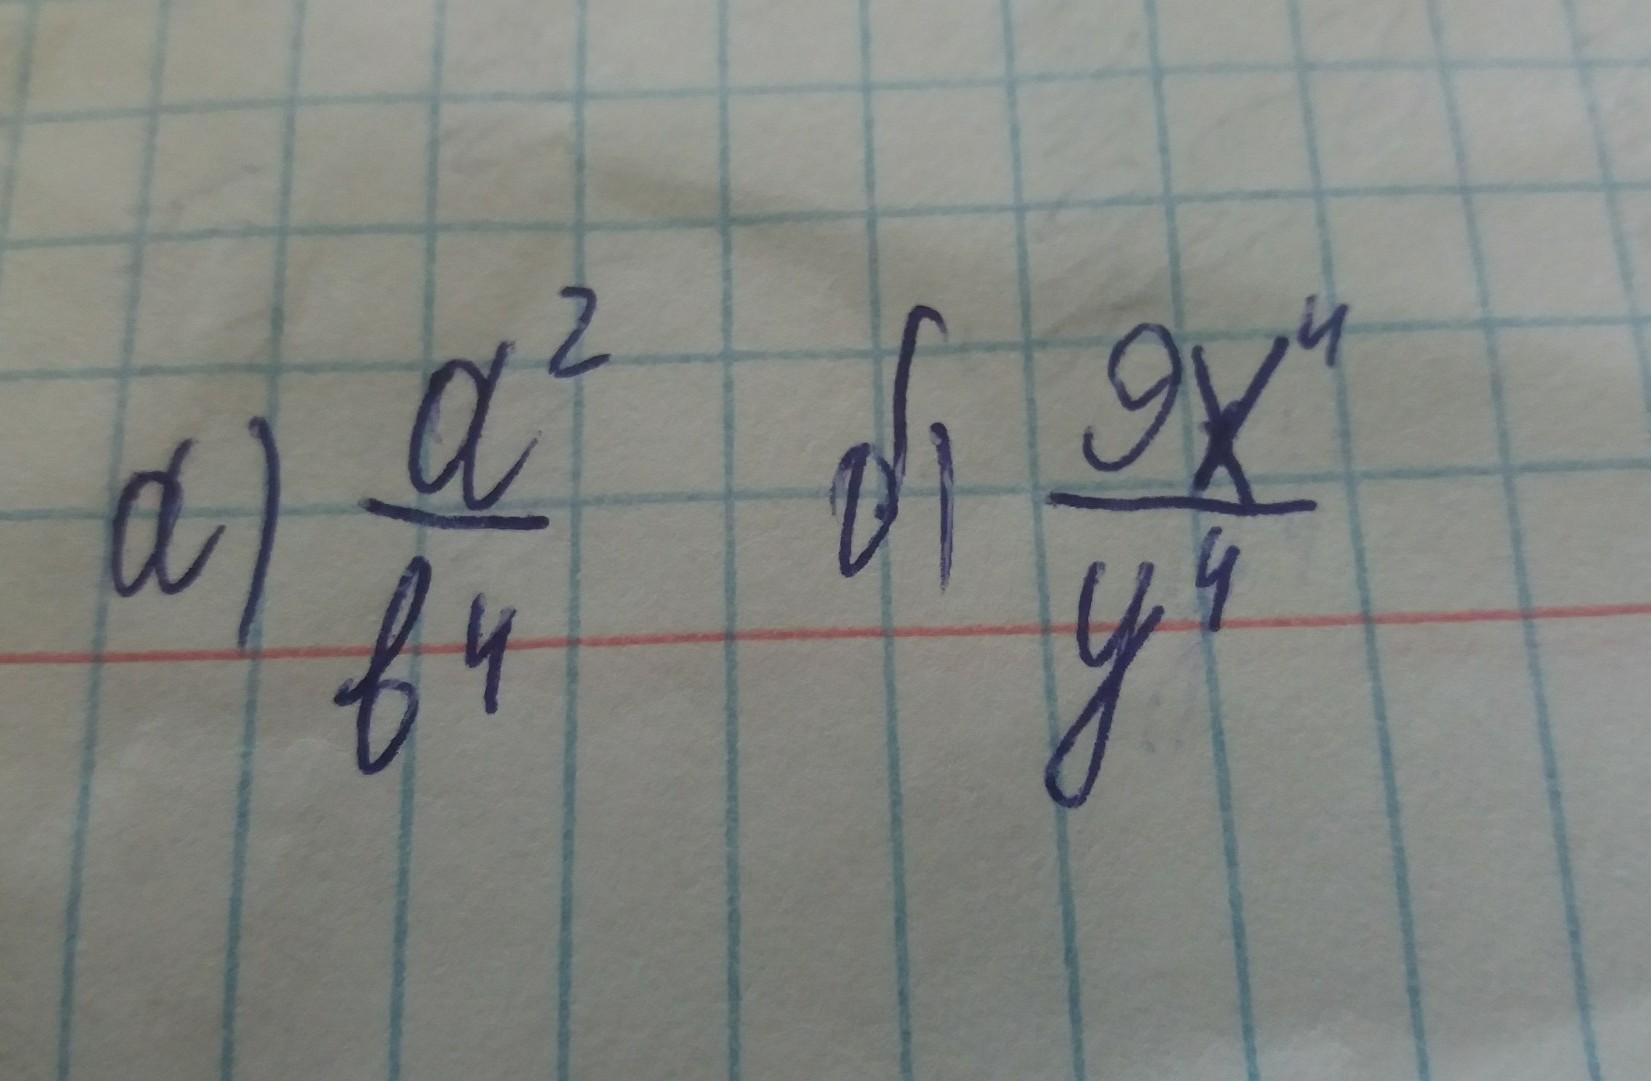 а) a²/b⁴ б) 9x⁴/y⁴